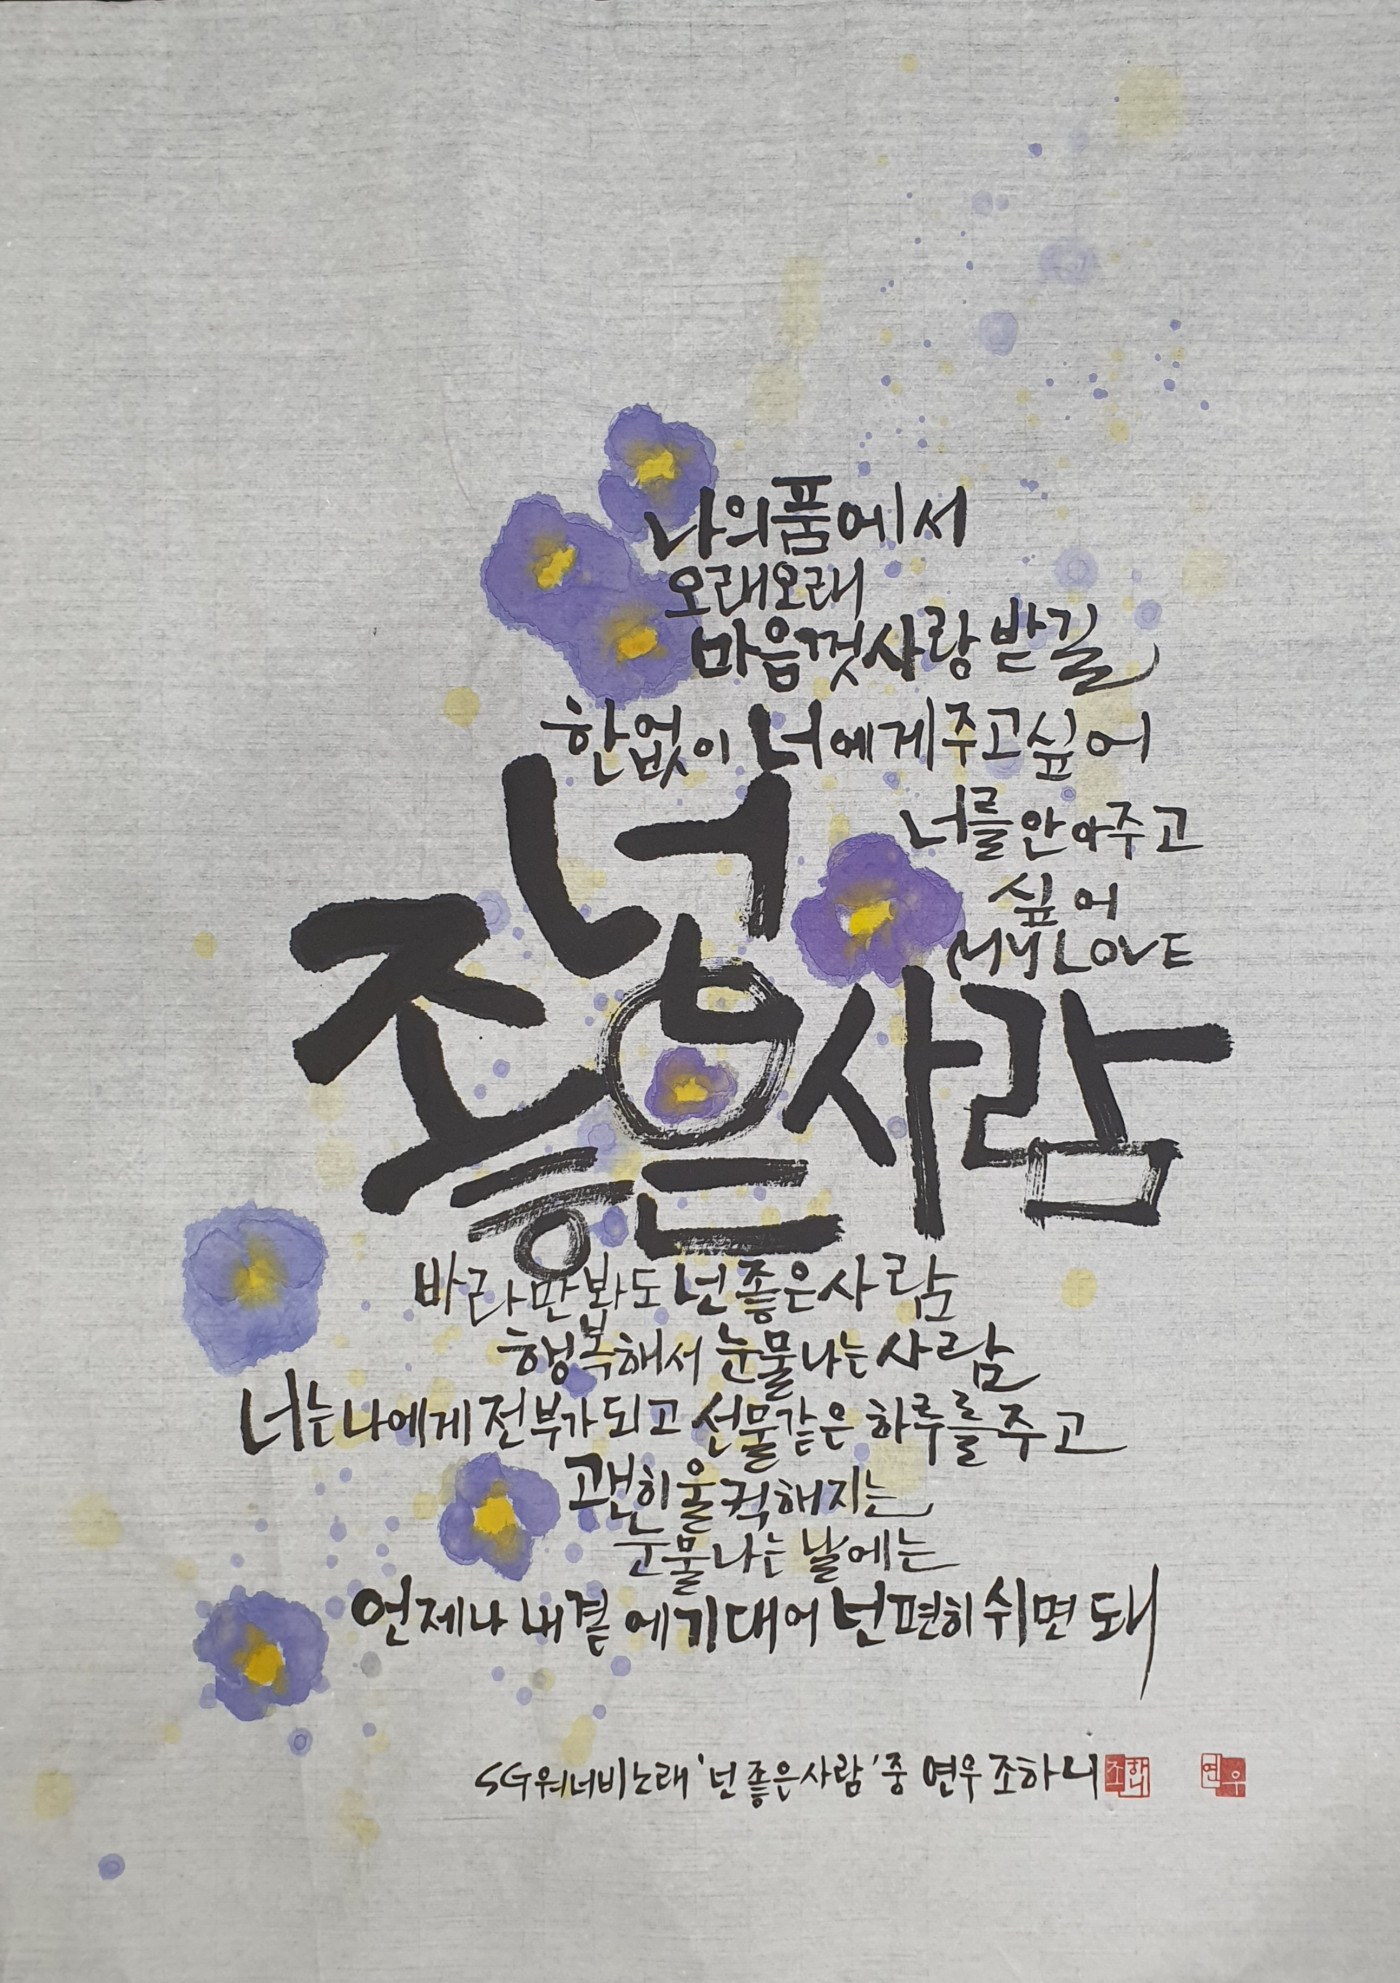 나의 품에서
오래오래
마음껏 사랑 받길
한없이 너에게 주고 싶어
너를 안아주고
싶어
MY LOVE
넌
좋은 사람
바라만 봐도 넌 좋은 사람
행복해서 눈물나는 사람
너는 나에게 전부가 되고 선물같은 하루를 주고
괜히 울적해지는
눈물나는 날에는
언제나 내 곁에 기대어 넌 편히 쉬면 돼
SG워너비 노래 '넌 좋은 사람' 중 연우 조하니
조하니
연우